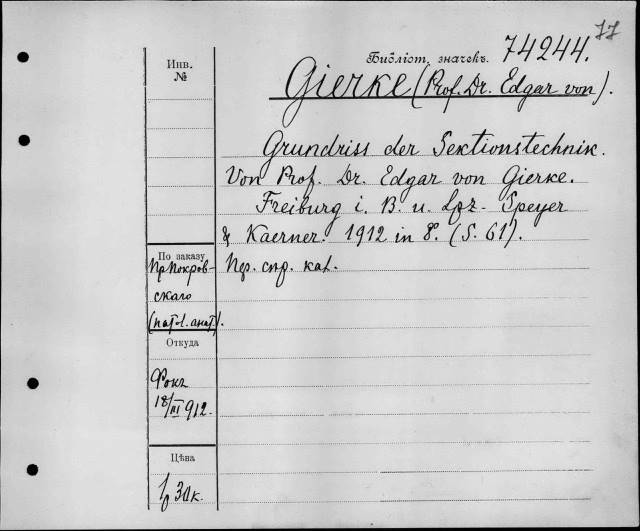 77
Библіот. значекъ. 74244.
Инв.
№
Gierke (Prof. Dr. Edgar von).
Grundriss der Sektionstechnik.
Von Prof. Dr. Edgar von Gierke.
Freiburg i. B. u. Lpz. Speyer
& Kaerner. 1912 in 8°. (S. 61).
По заказу
Пр. Покров-
скаго
(пат. анат.).
кат.
Откуда
Фокъ
18/III 912.
Цѣна
30 к.